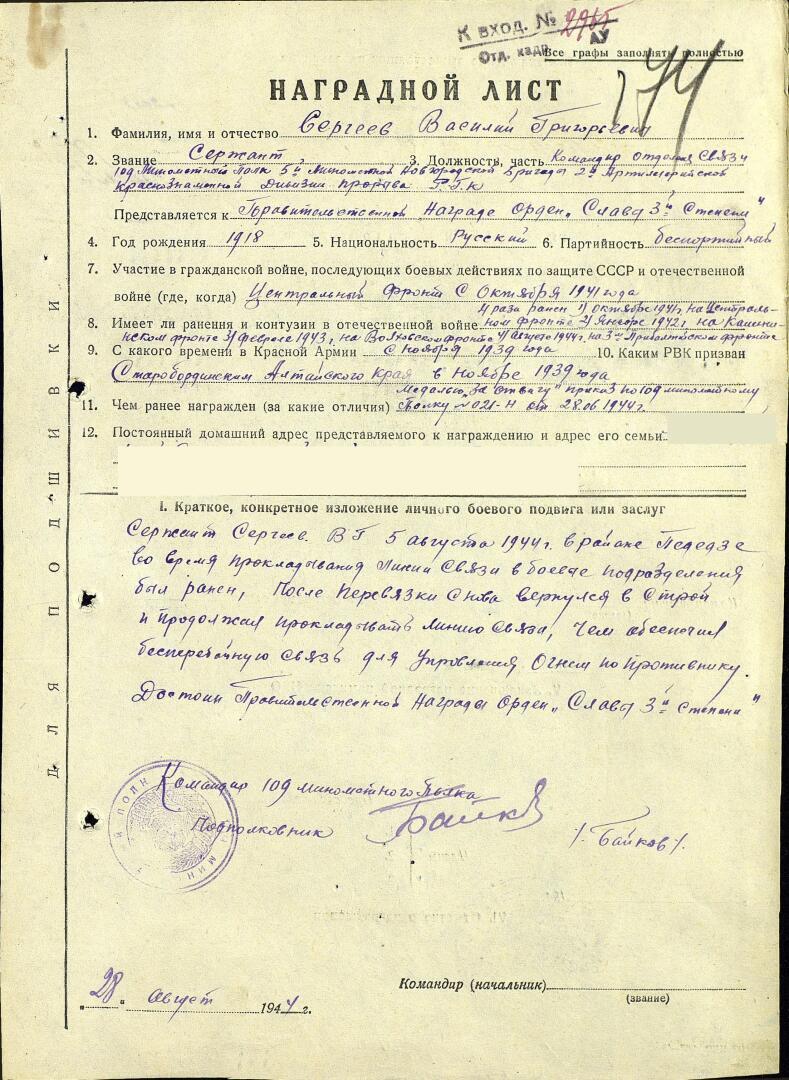 К ВХОД. № 2965
Отд. кадр. АУ
Все графы заполнять полностью
НАГРАДНОЙ ЛИСТ
1. Фамилия, имя и отчество Сергеев Василий Григорьевич
2. Звание Сержант, 3. Должность, часть Командир отделен. Связи
109 Минометный Полк 5й Минометной Новгородской бригады 2й Артилерийской
Краснознаменной Дивизии прорыва РГК
Представляется к Правительственной Награде Орден „Слава 3й Степени"
4. Год рождения 1918 5. Национальность Русский 6. Партийность беспортийный
7. Участие в гражданской войне, последующих боевых действиях по защите СССР и отечественной
войне (где, когда) Центральный фронт С Октября 1941 года
4 раза ранен 1) Октябре 1941г. на Централь-
8. Имеет ли ранения и контузии в отечественной войне ном фронте 2) Январе 1942г. на Калини-
нском фронте 3) Феврале 1943г, на Волховском фронте 4) Августе 1944г. на 3м Прибалтийском фронте
9. С какого времени в Красной Армии С Ноября 1939 года 10. Каким РВК призван
Старобординским Алтайского края в Ноябре 1939 года
Медалью „За отвагу" приказ по 109 минометному
11. Чем ранее награжден (за какие отличия) Полку № 021-Н от 28.06 1944г.
12. Постоянный домашний адрес представляемого к награждению и адрес его семьи:
I. Краткое, конкретное изложение личного боевого подвига или заслуг
Сержант Сергеев. В Г 5 августа 1944г. в районе Педедзе
во время прокладывания Линии Связи в боевые подразделения
был ранен, После Перевязки Снова вернулся в Строй
и продолжал прокладывать Линию Связи, Чем обеспечил
бесперебойную Связь для Управления Огнем по Противнику.
Достоин Правительственной Награды Орден „Слава 3й Степени"
Командир 109 минометного Полка
Подполковник Байков /. Байков /.
28 „ Август 1944 г.
Командир (начальник)
(звание)
ДЛЯ ПОДШИВКИ